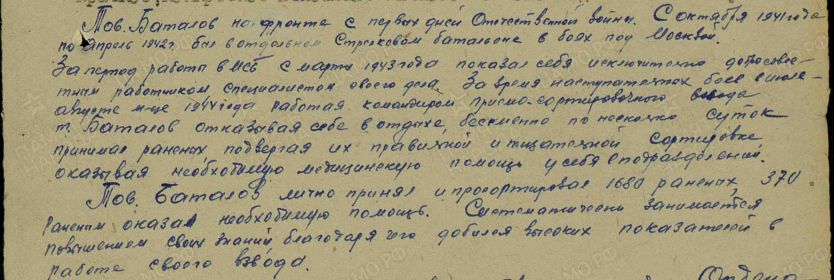 Тов. Баталов на фронте с первых дней Отечественной войны. С октября 1941 года
по апрель 1942 г. был в отдельном Стрелковом батальоне в боях под Москвой.
За период работы в МСБ с марта 1943 года показал себя исключительно добросовес-
тным работником специалистом своего дела. За время наступательных боев в июле-
августе м-це 1944 года работая командиром приемо-сортировочного взвода
т. Баталов отказывая себе в отдыхе, бессменно по несколько суток
принимал раненых подвергая их правильной и тщательной сортировке
оказывая необходимую медицинскую помощь у себя в подразделений.
Тов. Баталов лично принял и просортировал 1680 раненых, 370
раненым оказал необходимую помощь. Систематически занимается
повышением своих знаний благодаря чего добился высоких показателей в
работе своего взвода.
Ордена